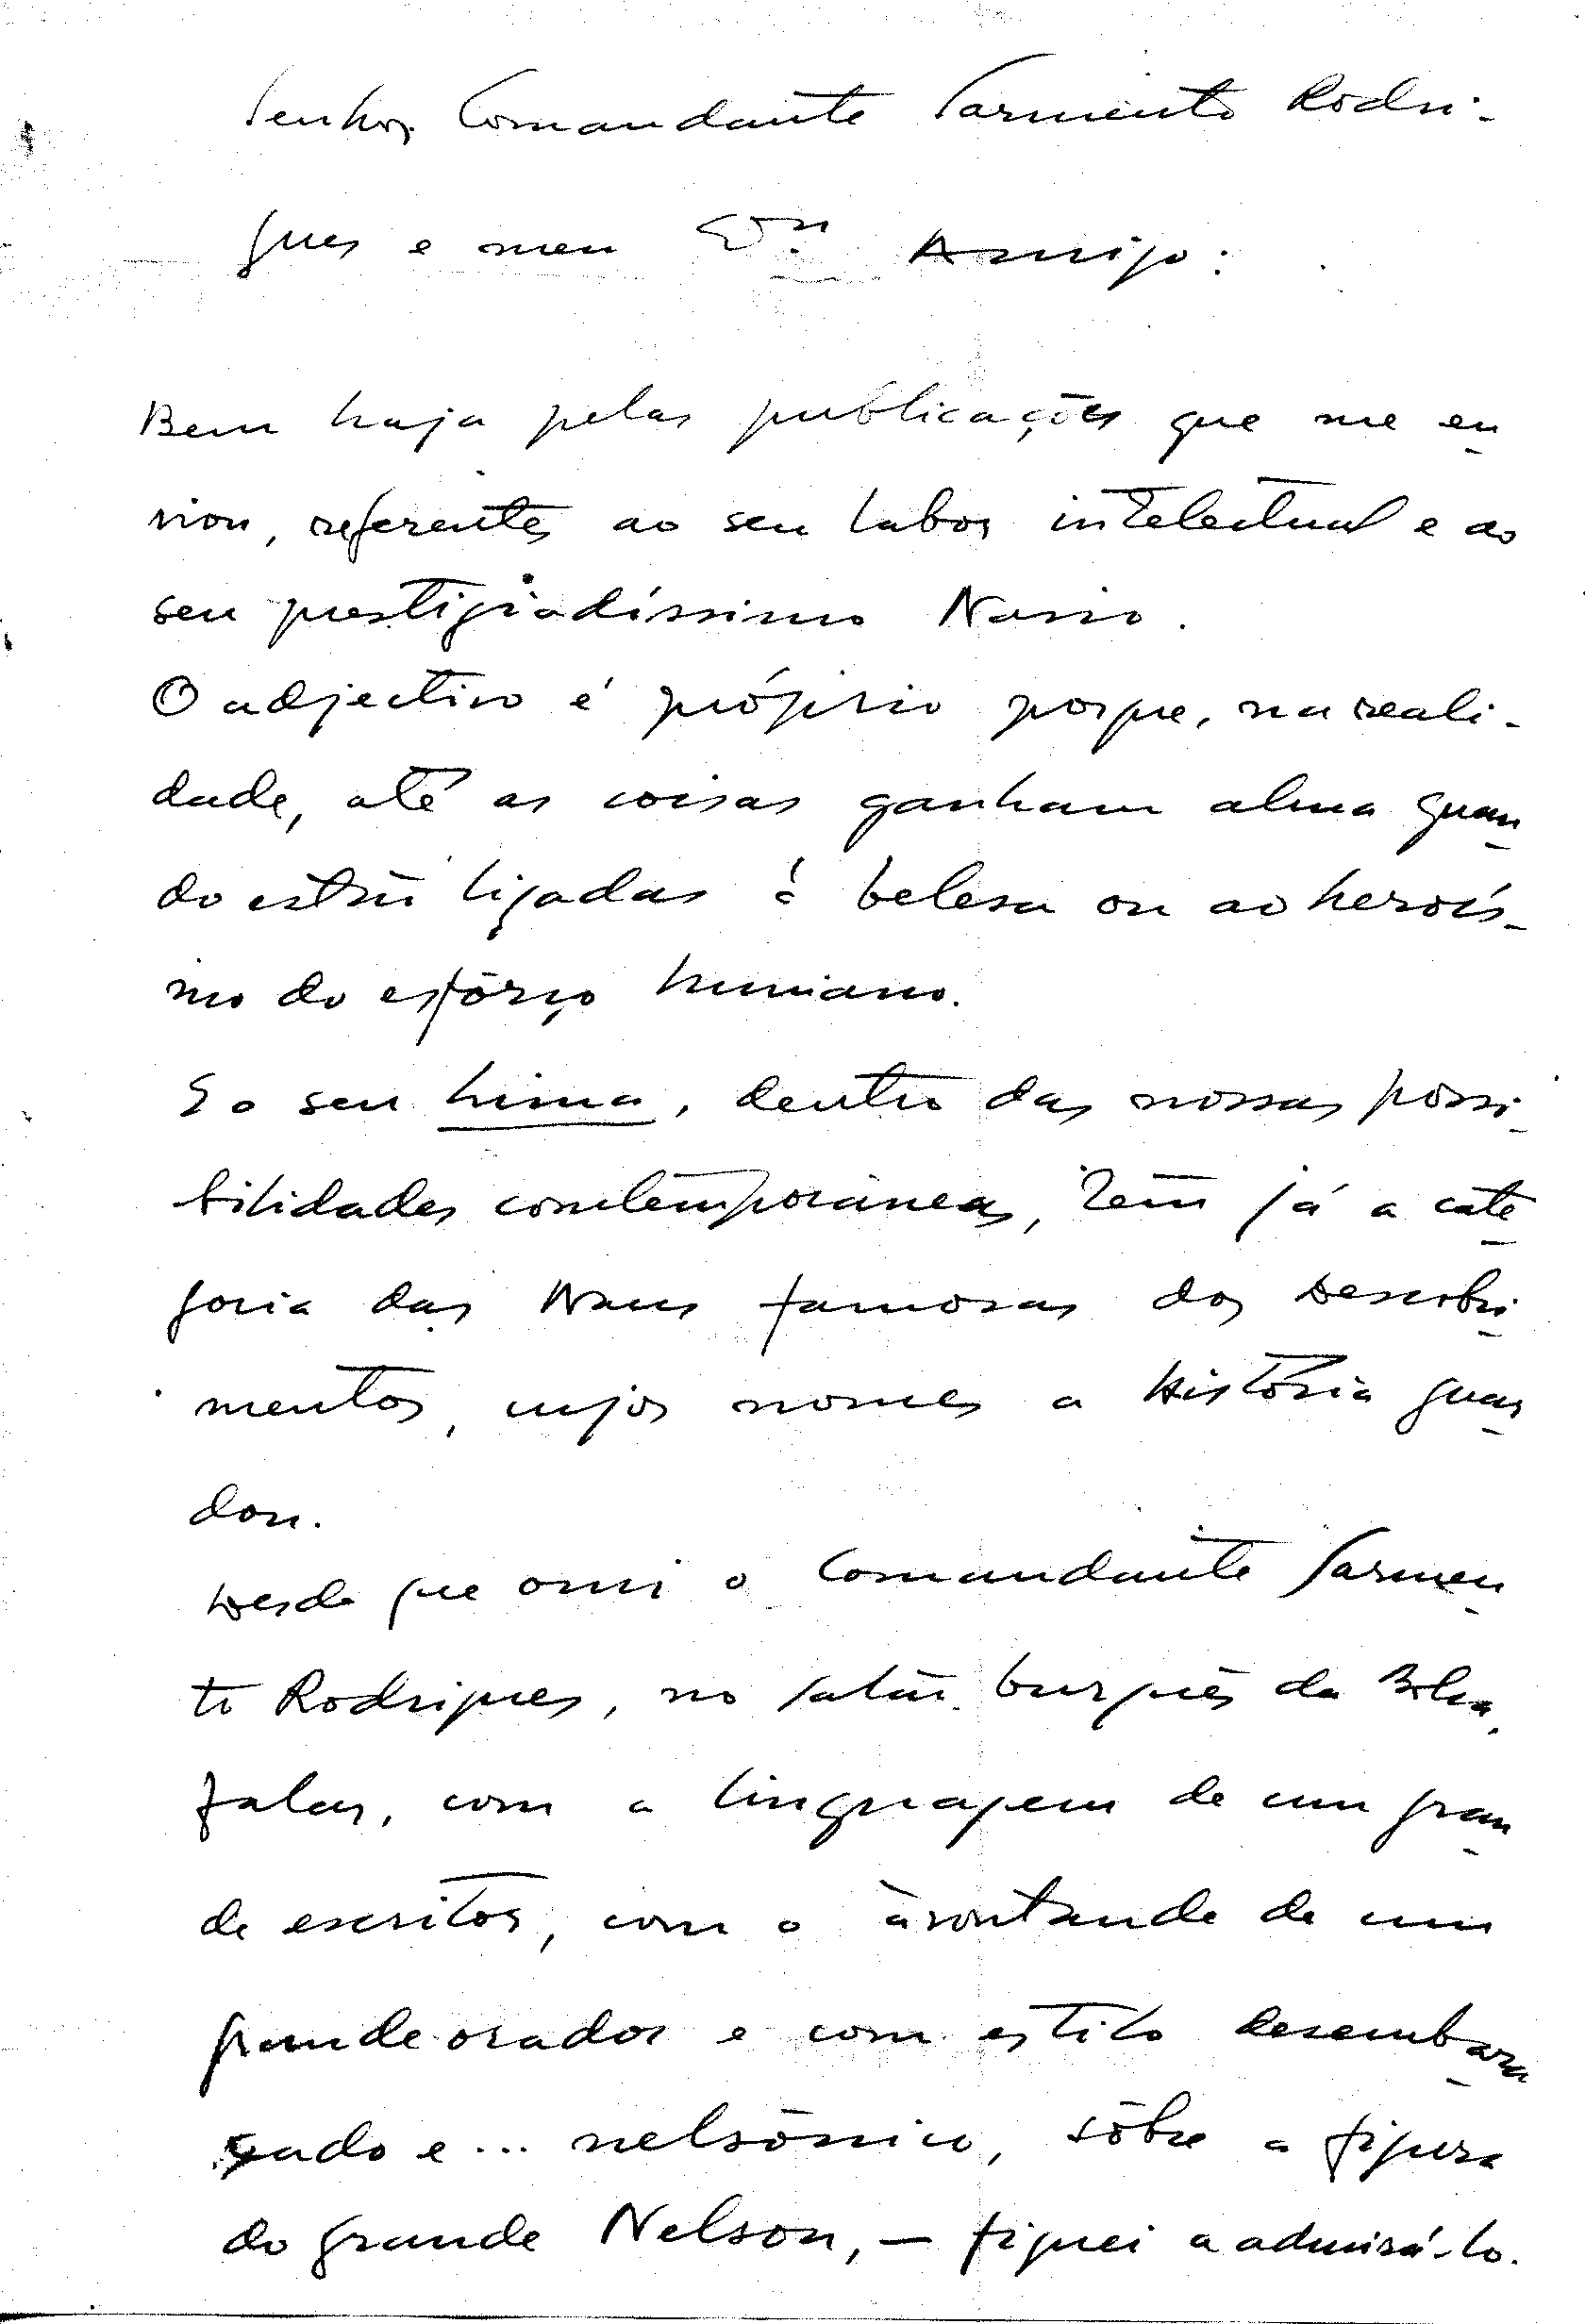 Senhor Comandante Sarmento Rodri-
gues e meu Exmº Amigo:
Bem haja pelas publicações que me en-
viou, referentes ao seu labor intelectual e ao
seu prestigiadíssimo Navio.
O adjectivo é próprio porque, na reali-
dade, até as coisas ganham alma quan-
do estão ligadas à belesa ou ao heroís-
mo do esfôrço humano.
E o seu Lima, dentro das nossas possi-
bilidades contemporâneas, tem já a cate-
goria das Naus famosas dos Descobri-
mentos, cujos nomes a História guar-
dou.
Desde que ouvi o Comandante Sarmen-
to Rodrigues, no salão burguês da Bolsa,
falar, com a linguagem de um gran-
de escritor, com o àvontande de um
grande orador e com estilo desembara-
çado e... nelsónico, sôbre a figura
do grande Nelson, — fiquei a admirá-lo.